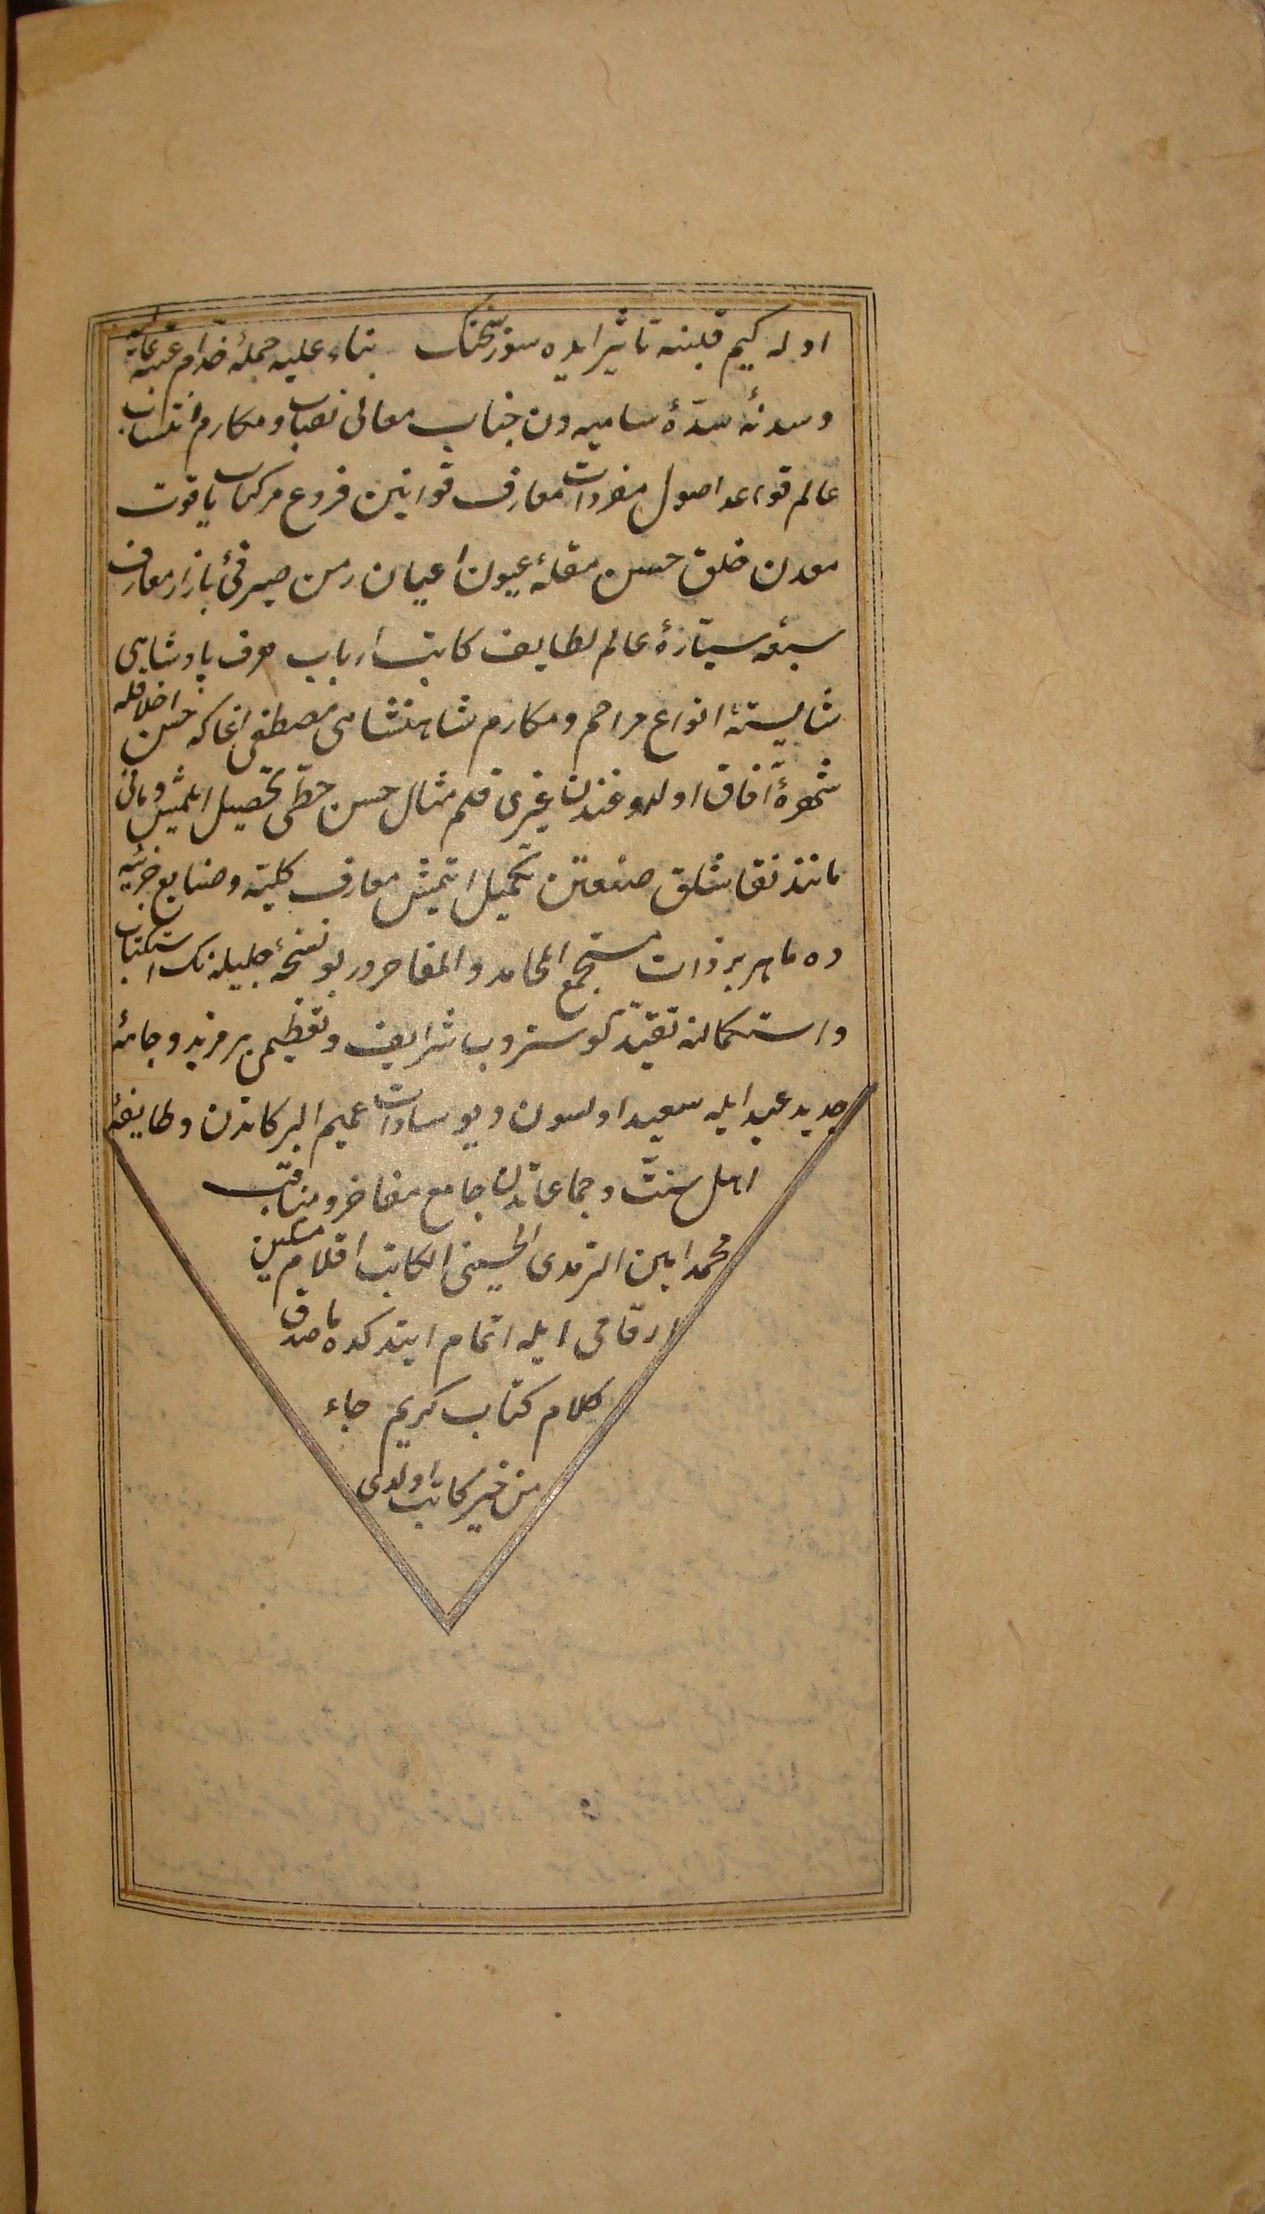 اوله كیم قلبنه تاثیر ایده سوز سخنك بناء علیه جملهٔ خدام عتبهٔ علیه
و سدنهٔ سدّهٔ سامیه دن جناب معالی نصاب و مكارم انتساب
عالم قواعد اصول مفردات معارف قوانین فروع مركبات یاقوت
معدن خلق حسن مقلهٔ عیون اعیان زمن صیرفئ بازار معارف
سبعه سیّارهٔ عالم لطایف كاتب ارباب حرف پادشاهی
شایستهٔ انواع مراحم و مكارم شاهنشاهی مصطفی اغا كه حسن اخلاقله
شهرهٔ آفاق اولدوغندن غیری قلم مثال حسن خطّی تحصیل ایلمیش و مانی
مانند نقاشلق صنعتن تكمیل ایتمیش معارف كلیّه و صنایع جزئیه
ده ماهر بر ذات مستجمع المحامد والمفاخردر بو نسخهٔ جلیله نك استكتاب
و استكمالنه تقیّد كوستروب شرایف و تعظیمی بر مزید و جامهٔ
جدید عید ایله سعید اولسون دیو سادات عمیم البركاتدن و طایفهٔ
اهل سنّت و جماعتدن جامع مفاخر و مناقب
محمد امین الترمدی الحسینی الكاتب اقلام مسكین
ارقامی ایله اتمام ایتدكده ماصدق
كلام كتاب كریم جاء
من خیر كاتب اولدی